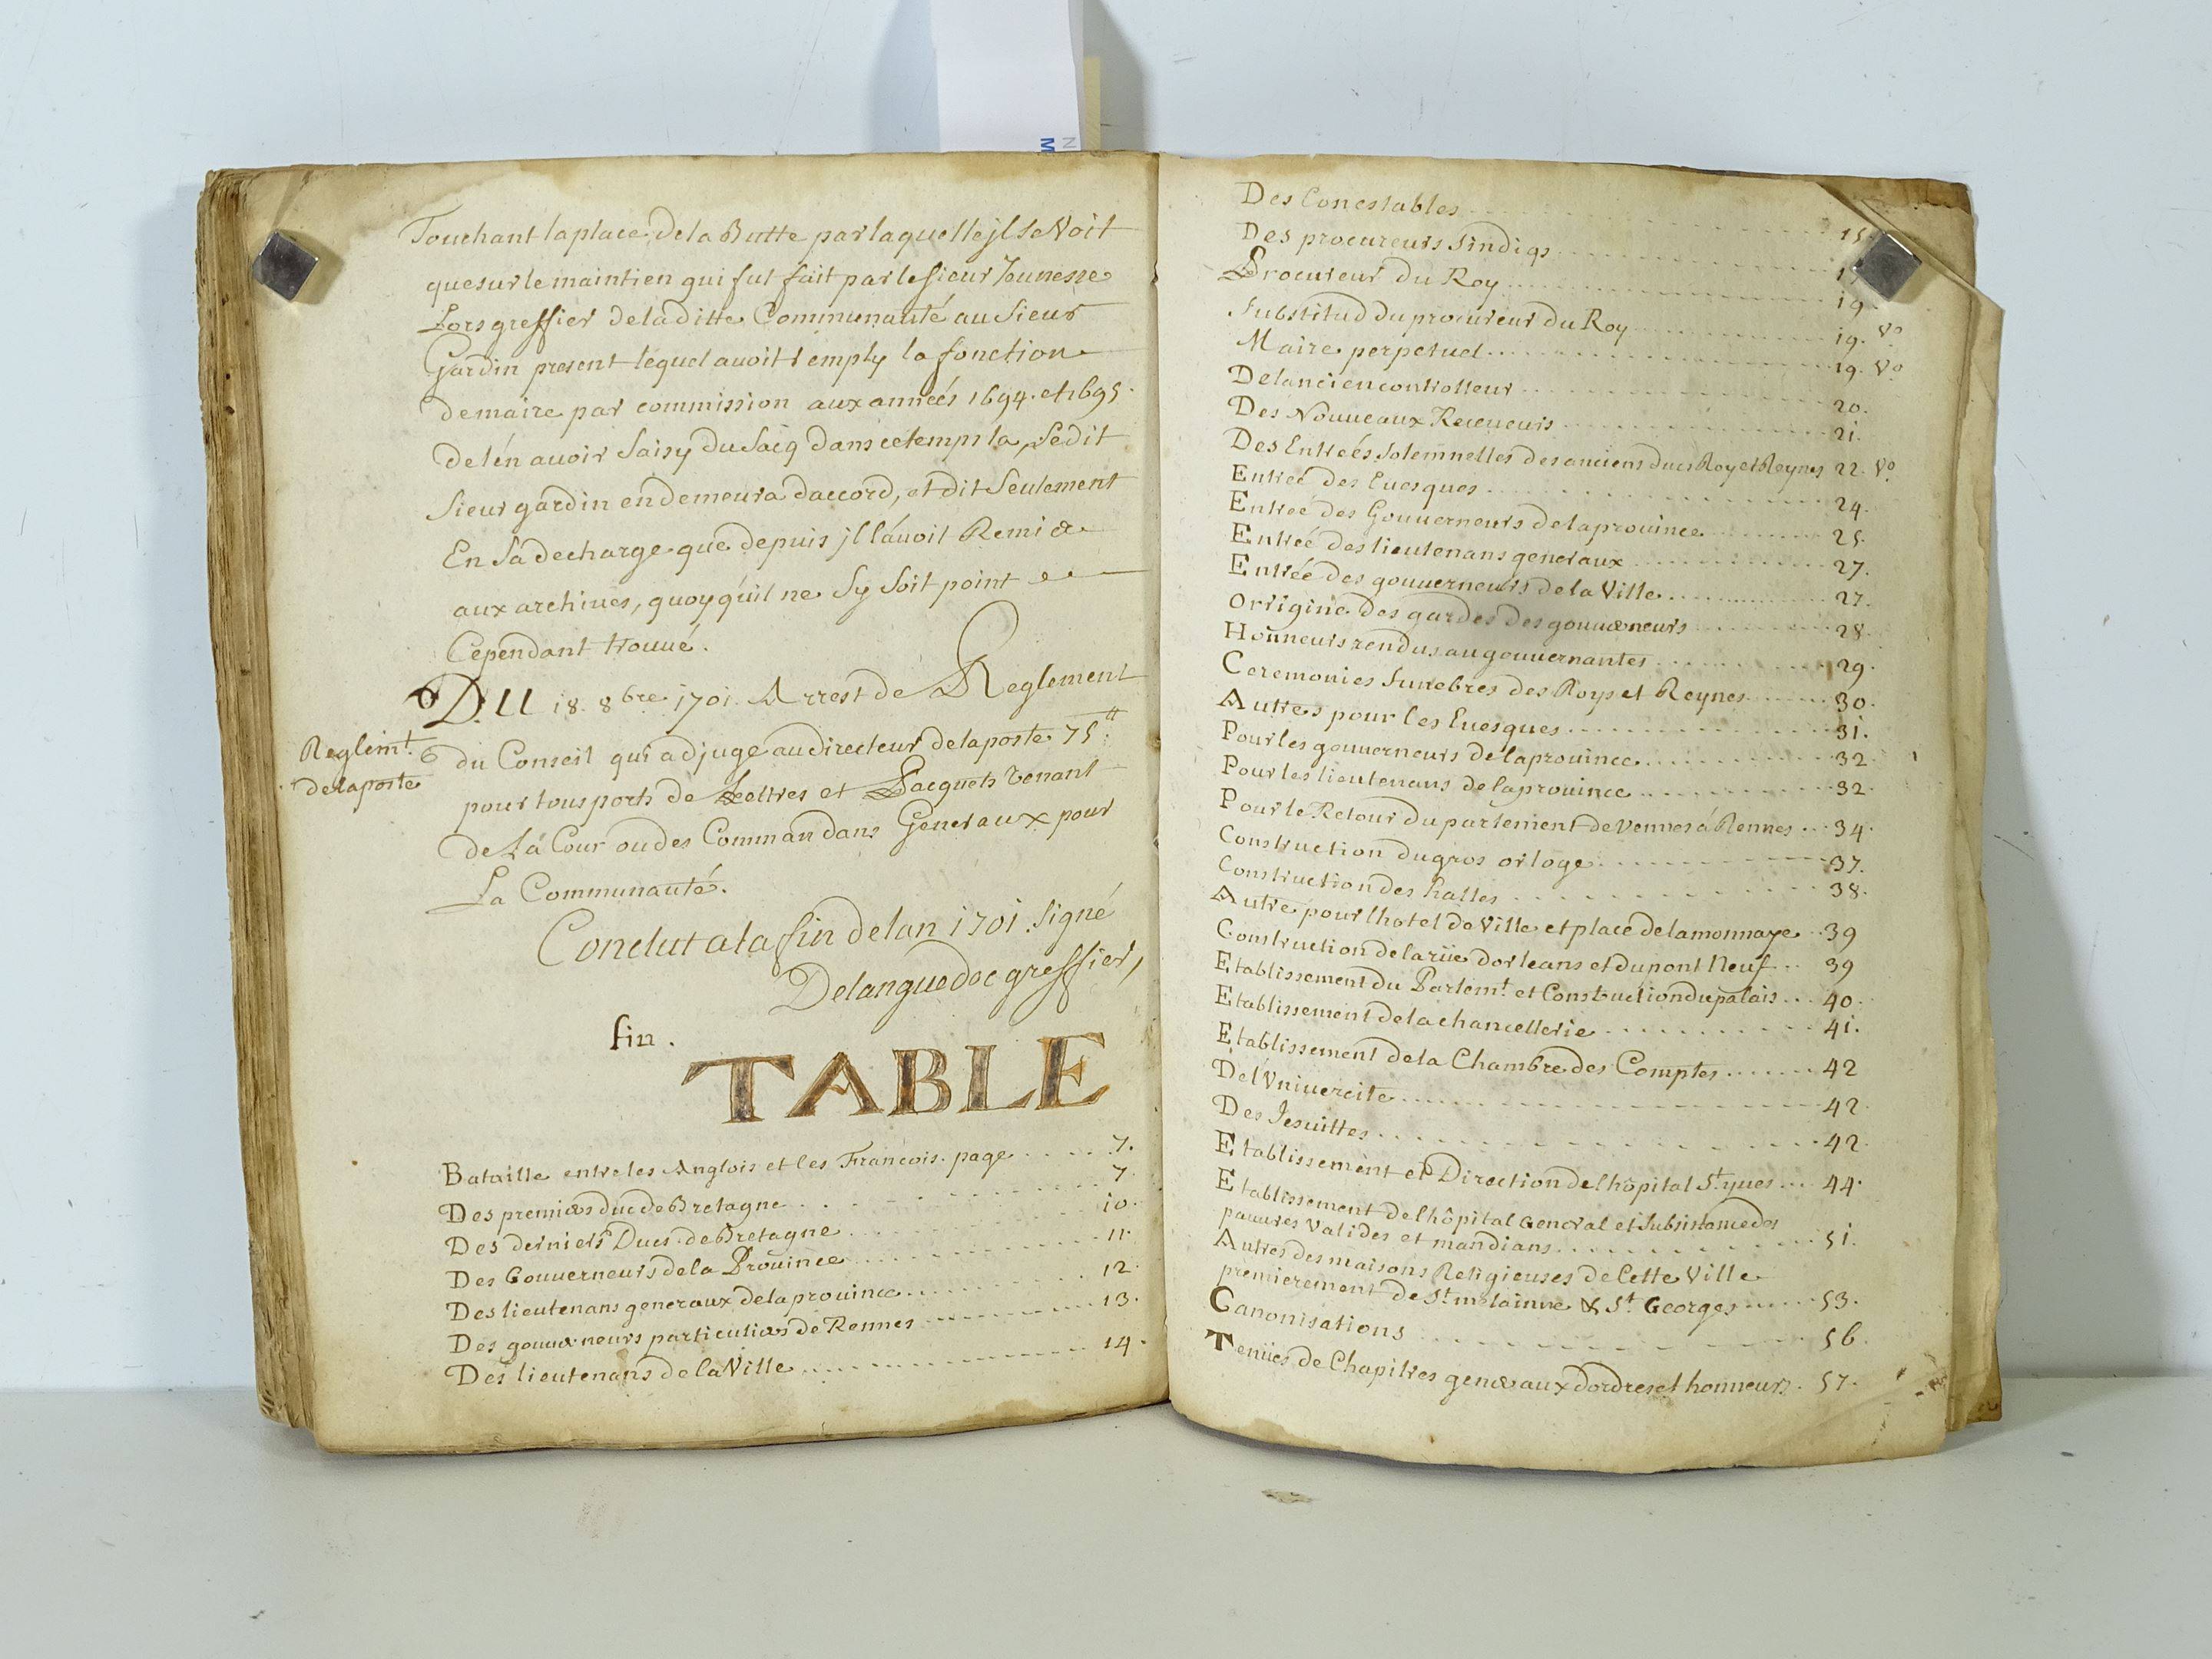 Touchant la place de la Butte par laquelle jl se Voit
que sur le maintien qui fut fait par le sieur Jeunesse
Lors greffier de la ditte Communauté au Sieur
Gardin present lequel auoit remply la fonction
de maire par commission aux années 1694. et 1695.
de lén auoir Saisy du Sacq dans ce temps la, Ledit
Sieur gardin en demeura daccord, et dit Seulement
En Sa decharge que depuis jl láuoit Remi
aux archiues, quoy qúil ne Sy Soit point
Cependant trouué.
DU 18. 8bre 1701. Arrest de Reglement
du Conseil qui adjuge au directeur de la poste 75tt
pour tous ports de Lettres et Pacquets venant
de La Cour ou des Commandans Generaux pour
La Communauté.
Reglemt.
de la poste
Conclut a la fin de lan 1701. Signé
Delanguedoc greffier,
fin.
TABLE
Bataille entre les Anglois et les Francois. page ..... 7.
Des premiers duc de Bretagne ..... 7.
Des derniers Ducs de Bretagne ..... 10.
Des Gouuerneurs de la Prouince ..... 11.
Des lieutenans generaux de la prouince ..... 12.
Des gouuerneurs particuliers de Rennes ..... 13.
Des lieutenans de la Ville ..... 14.
Des Conestables ..... 15.
Des procureurs Sindiqs .....
Procureur du Roy ..... 19.
Substitud du procureur du Roy ..... 19. Vo
Maire perpetuel ..... 19. Vo
De lancien controlleur ..... 20.
Des Nouueaux Receueurs ..... 21.
Des Entreés Solemnelles des anciens ducs Roy et Reynes 22. Vo
Entreé des Euesques ..... 24.
Entreé des Gouuerneurs de la prouince ..... 25.
Entreé des lieutenans generaux ..... 27.
Entreé des gouuerneurs de la Ville ..... 27.
Origine des gardes des gouuerneurs ..... 28.
Honneurs rendus au gouuernantes ..... 29.
Ceremonies funebres des Roys et Reynes ..... 30.
Autres pour les Euesques ..... 31.
Pour les gouuerneurs de la prouince ..... 32
Pour les lieutenans de la prouince ..... 32.
Pour le Retour du parlement de Vennes á Rennes ... 34.
Construction du gros orloge ..... 37.
Construction des halles ..... 38.
Autre pour lhotel de Ville et place de la monnaye .. 39
Construction de la rüe dorleans et du pont Neuf ... 39
Etablissement du Parlemt. et Construction du palais ... 40.
Etablissement de la chancellerie ..... 41.
Etablissement de la Chambre des Comptes ..... 42
De lVniuercite ..... 42.
Des Jesuittes ..... 42.
Etablissement et Direction de lhôpital St. yues ... 44.
Etablissement de lhôpital General et Subsistance des
pauures Valides et mandians ..... 51.
Autres des maisons Religieuses de Cette Ville
premierement de St. melainne & St. Georges ..... 53.
Canonisations ..... 56.
Tenües de Chapitres generaux dordres et honneurs. 57.